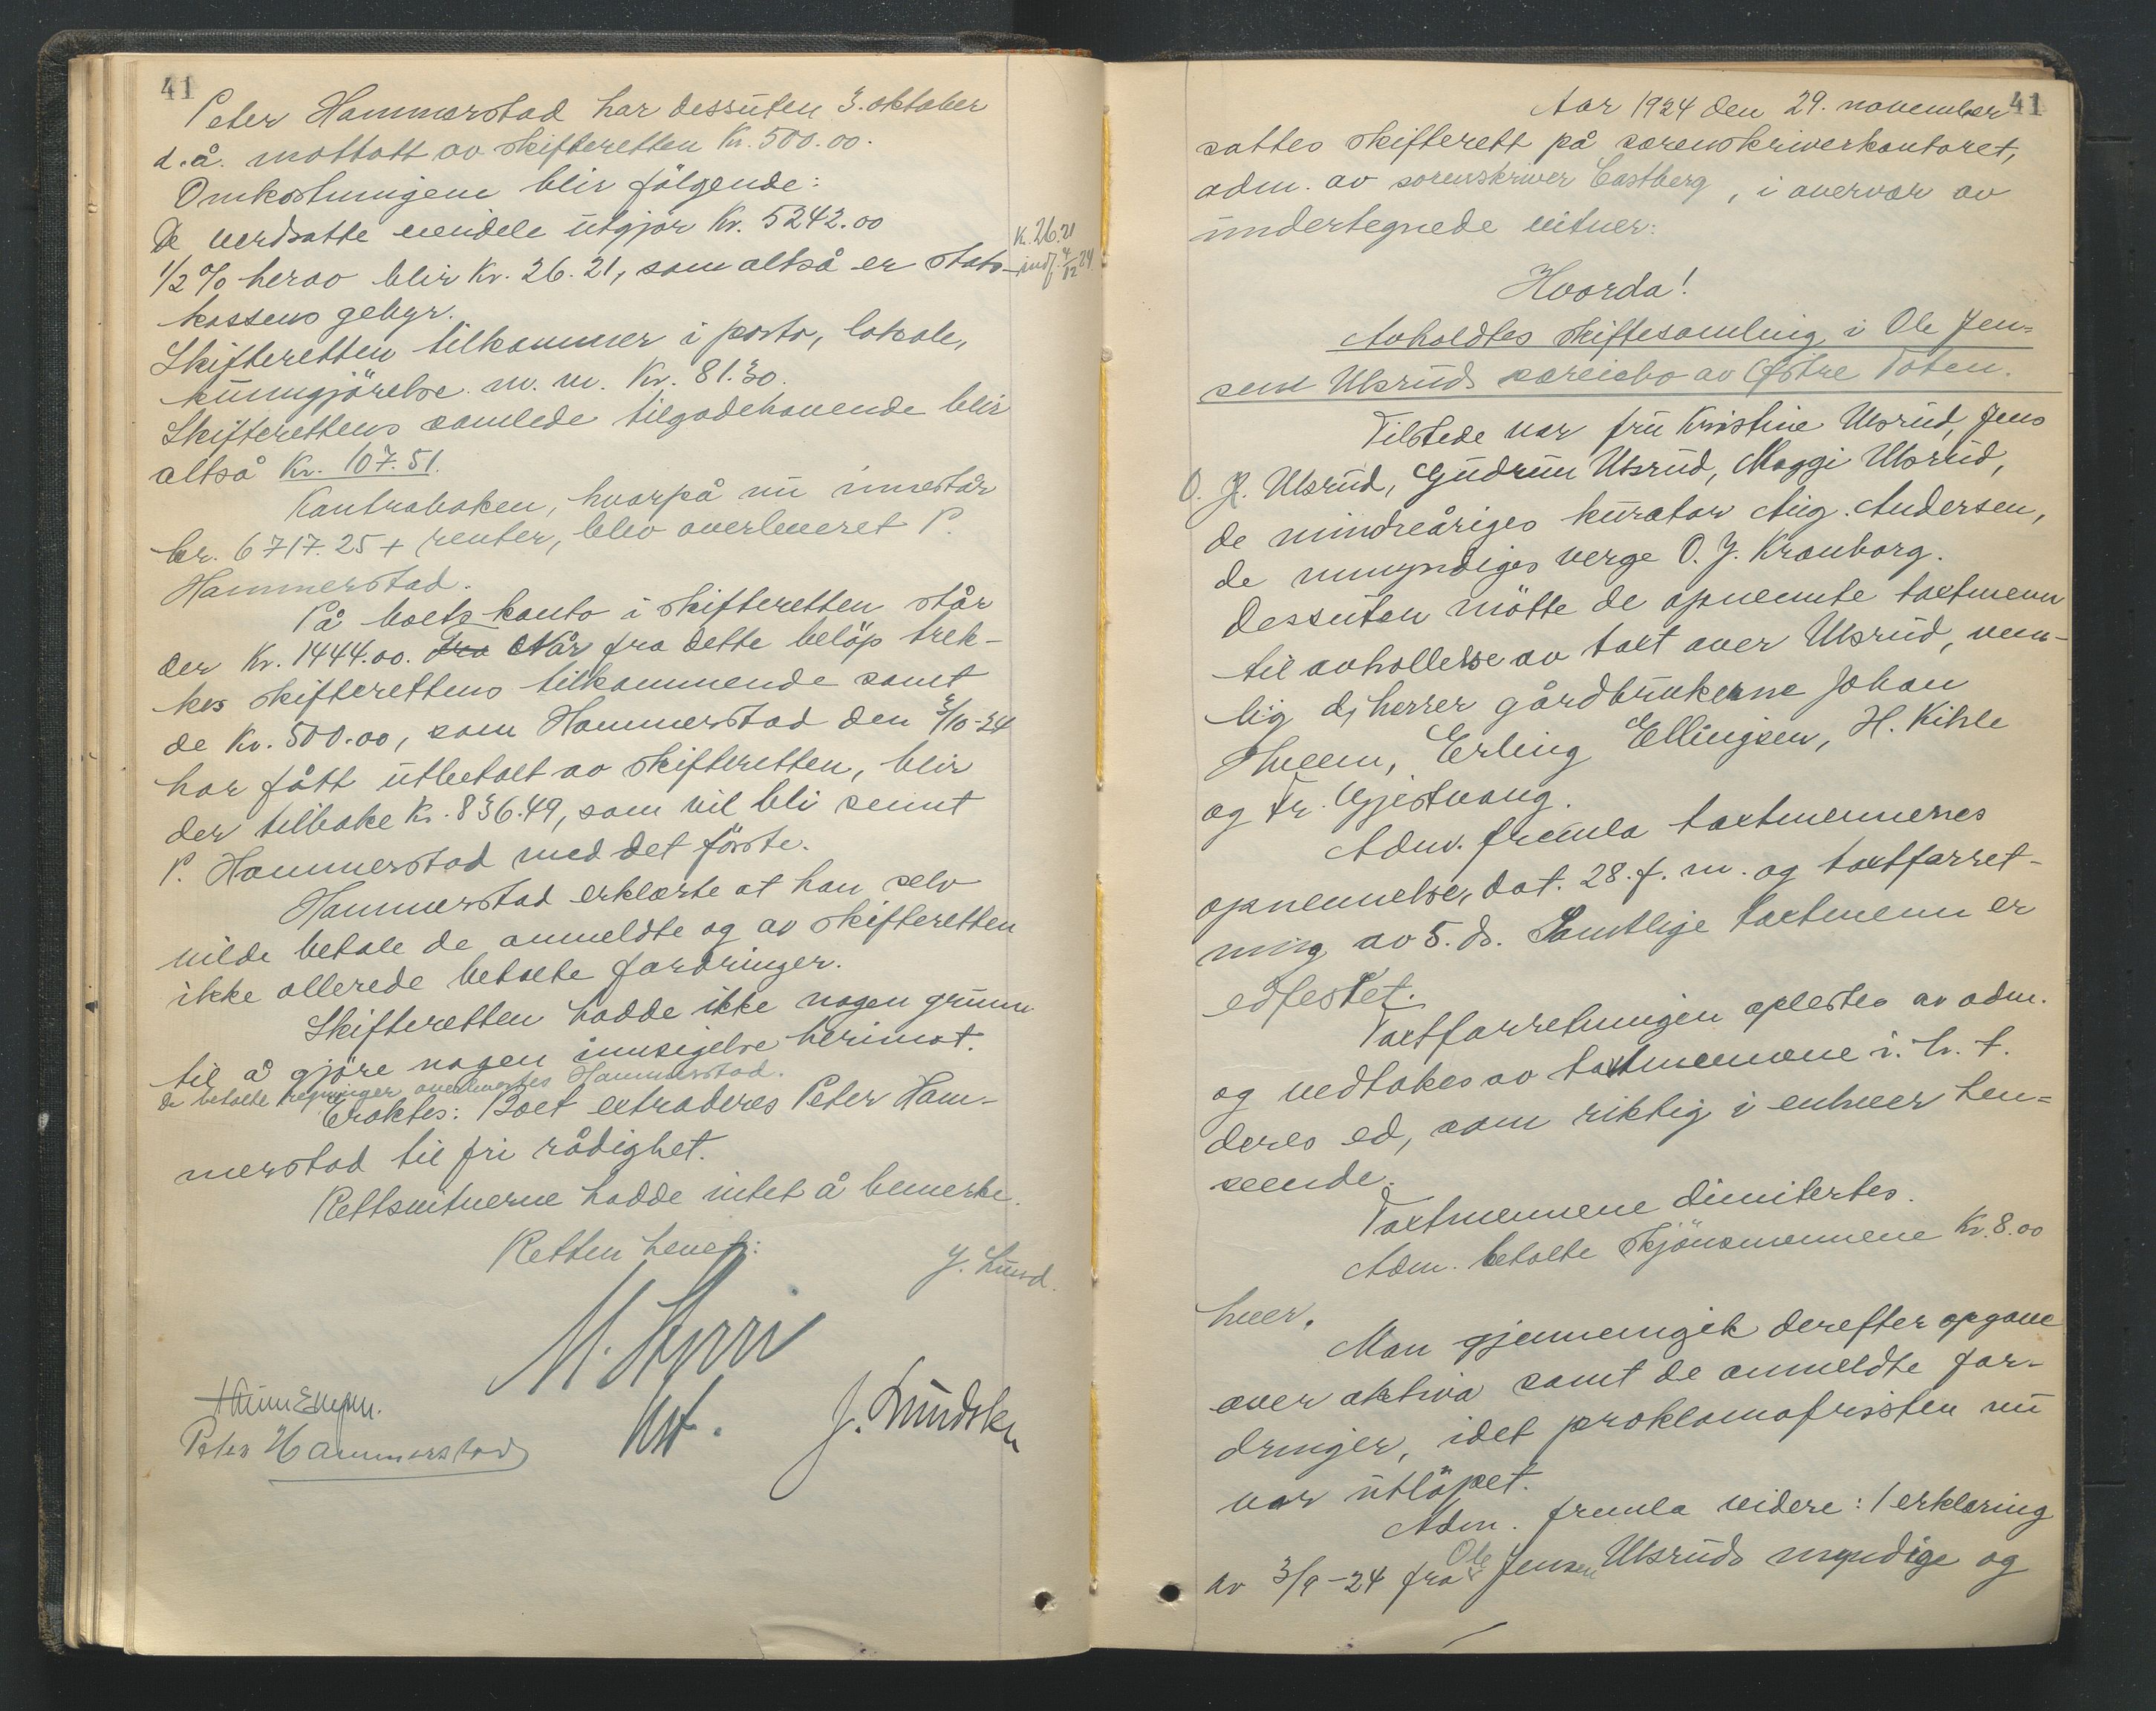 41
Peter Hammerstad har dessuten 3. oktober
d.å. mottatt av skifteretten Kr. 500.00.
Omkostningene blir følgende:
De verdsatte eiendele utgjør Kr. 5242.00
1/2 % herav blir Kr. 26.21, som altså er stats-
kassens gebyr.
Kr. 26.21
indf. 4/12 24
Skifteretten tilkommer i porto, lokale,
kunngjörelse m. m. Kr. 81.30.
Skifterettens samlede tilgodehavende blir
altså Kr. 107.51.
Kontraboken, hvorpå nu innestår
kr. 6717.25 + renter, blev overleveret P.
Hammerstad.
På boets konto i skifteretten står
der Kr. 1444.00. Fra Når fra dette beløp trek-
kes skifterettens tilkommende samt
de Kr. 500.00, som Hammerstad den 3/10-24
har fått utbetalt av skifteretten, blir
der tilbake Kr. 836.49, som vil bli sennt
P. Hammerstad med det förste.
Hammerstad erklærte at han selv
vilde betale de anmeldte og av skifteretten
ikke allerede betalte fordringer.
Skifteretten hadde ikke nogen grunn
til å gjöre nogen innsigelse herimot.
De betalte regninger overleveртes Hammerstad.
Eraktes: Boet extraderes Peter Ham-
merstad til fri rådighet.
Rettsvitnerne hadde intet å bemerke.
Retten hevet:
J. Lund.
M. Styri
kst.
J. Lundsten
Peter Hammerstad
41
Aar 1924 den 29. november
sattes skifterett på sorenskriverkontoret,
adm. av sorenskriver Castberg, i overvær av
undertegnede vitner:
Hvorda!
Avholdtes skiftesamling i Ole Jen-
sen Ulsruds særeiebo av Østre Toten.
Tilstede var fru Kristine Ulsrud, Jens
O. H. Ulsrud, Gudrun Ulsrud, Maggi Ulsrud,
de mindreåriges kurator Aug. Andersen,
de umyndiges verge O. J. Kronborg.
Dessuten mötte de opnevnte taxtmenn
til avhollelse av taxt over Ulsrud, nem-
lig d, herrer gårdbrukerne Johan
Thveen, Erling Ellingsen, H. Kihle
og Fr. Gjestvang.
Adm. fremla taxtmennenes
opnevnelse, dat. 28. f. m. og taxtforret-
ning av 5. ds. Samtlige taxtmenn er
edfestet.
Taxtforretningen oplestes av adm.
og vedtokes av taxtmennene i. h. t.
deres ed, som riktig i enhver hen-
seende.
Taxtmennene dimitertes.
Adm. betalte skjönsmennene Kr. 8.00
hver.
Man gjennemgik derefter opgave
over aktiva samt de anmeldte for-
dringer, idet proklamafristen nu
var utlöpet.
Adm. fremla videre: 1 erklæring
av 3/9-24 fra Ole Jensen Ulsruds myndige og